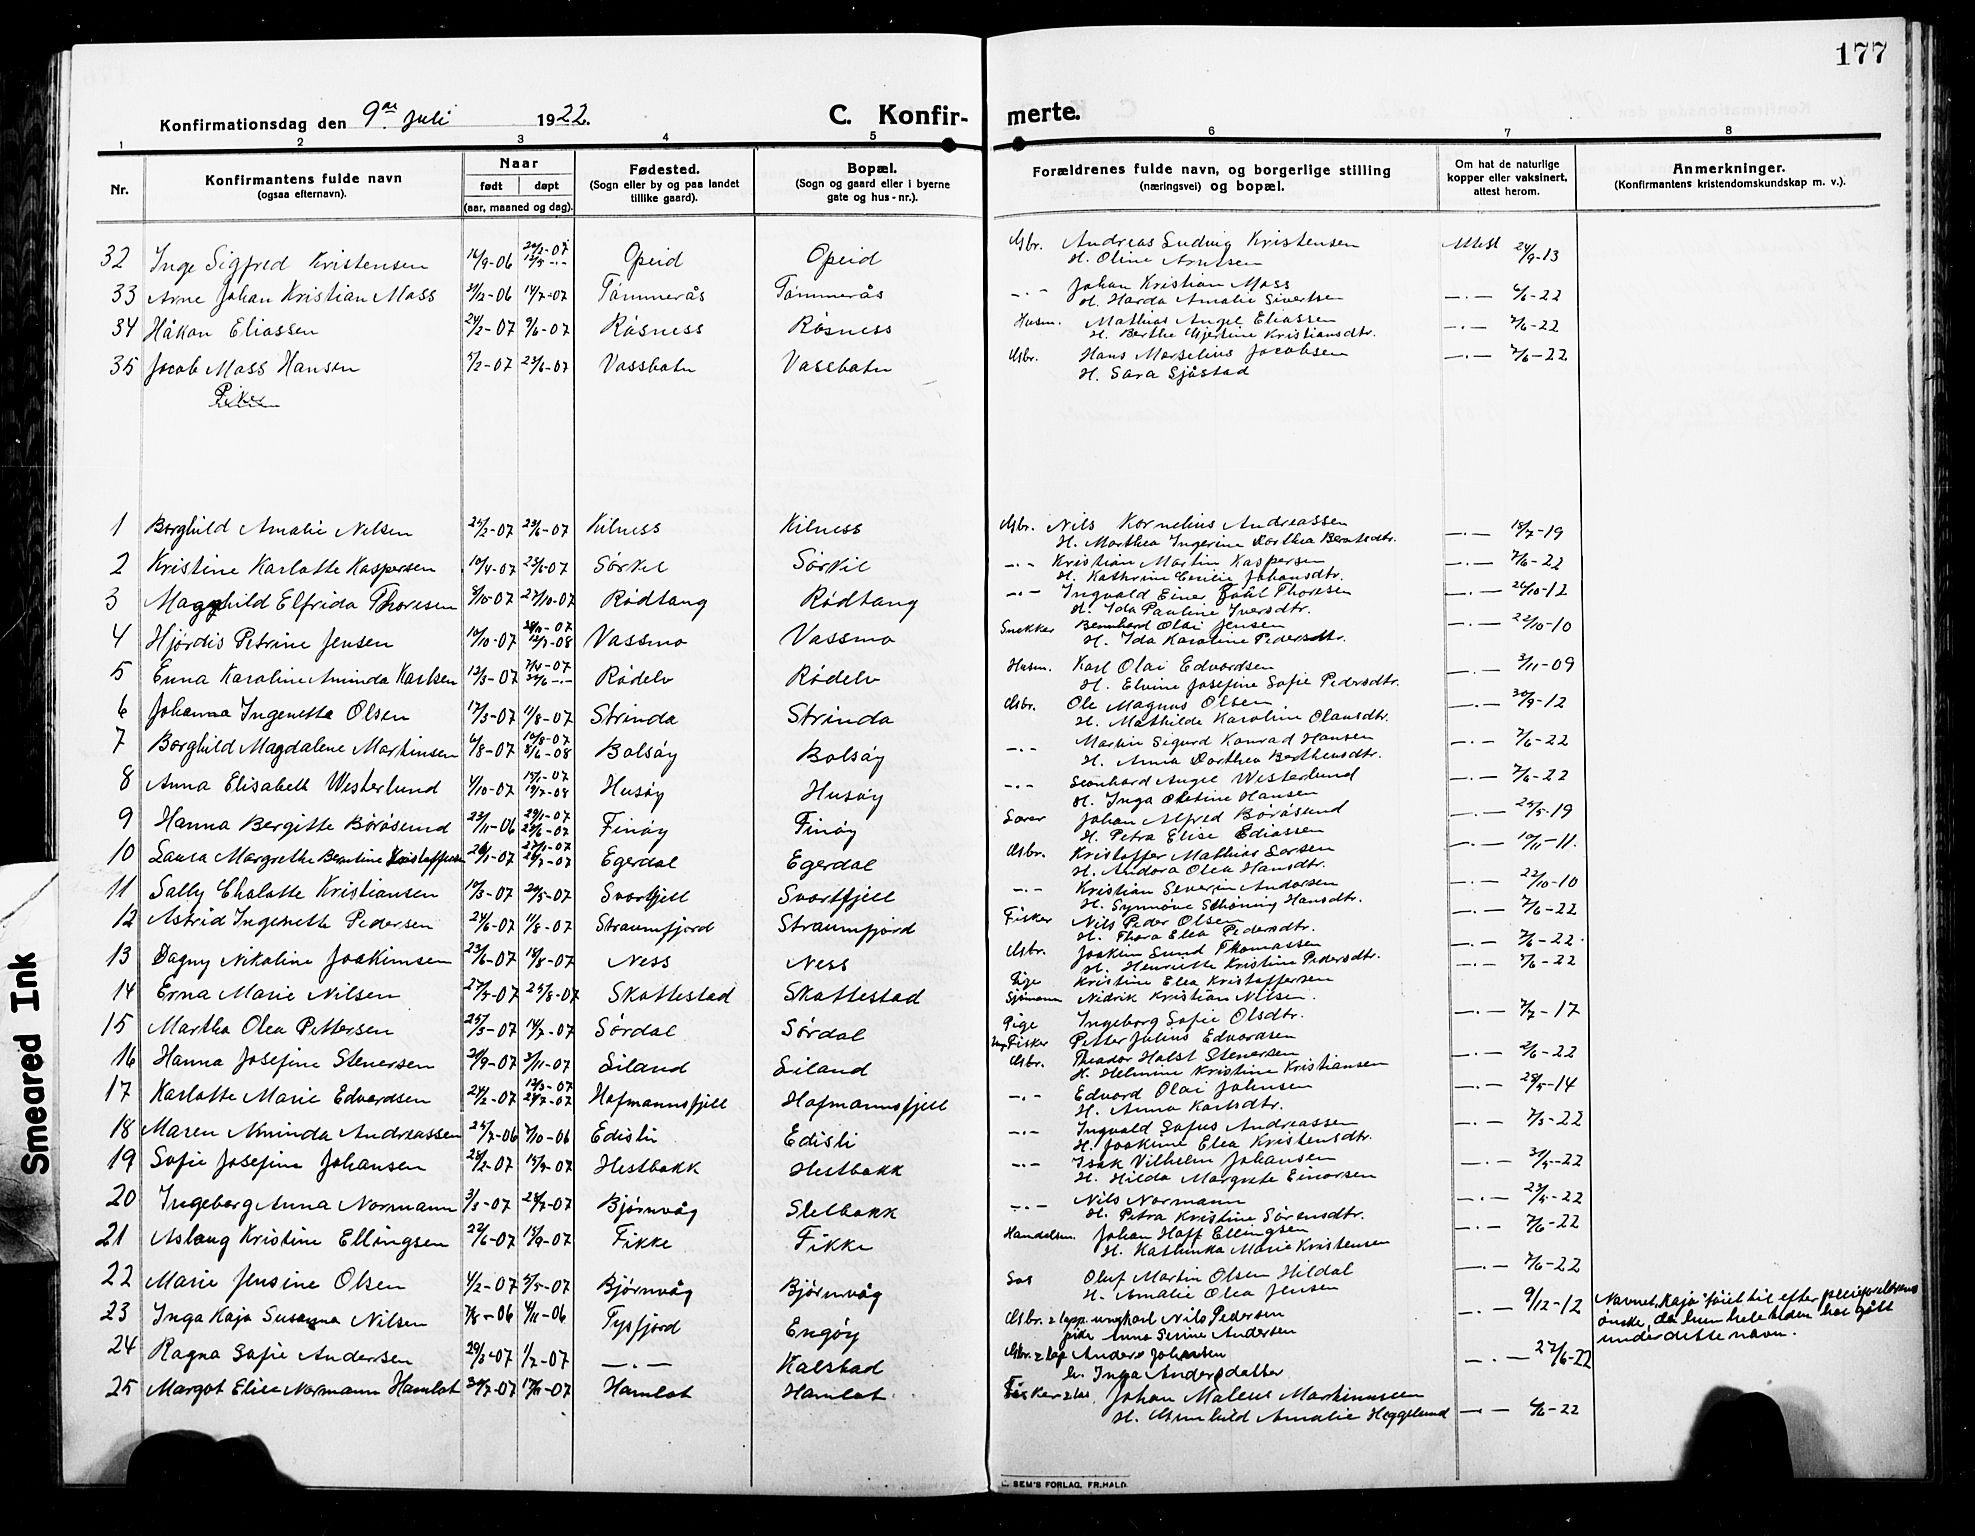 177
Konfirmationsdag den 9de Juli 1922. C. Konfirmerte.
1 2 3 4 5 6 7 8
Nr. Konfirmantens fulde navn (ogsaa efternavn). Naar født døpt (aar, maaned og dag). Fødested. (Sogn eller by og paa landet tillike gaard). Bopæl. (Sogn og gaard eller i byerne gate og hus-nr.). Forældrenes fulde navn, og borgerlige stilling (næringsvei) og bopæl. Om hat de naturlige kopper eller vaksinert, attest herom. Anmerkninger. (Konfirmantens kristendomskundskap m. v.).
32 Inge Sigfred Kristensen 16/9-06 Opeid Opeid Gbr. Andreas Ludvig Kristensen Attest 24/9-13
H. Oline Arntsen
33 Arne Johan Kristian Moss 31/12-06 14/7-07 Tømmerås Tømmerås -"- Johan Kristian Moss —"— 6/6-22
H. Harda Amalie Sivertsen
34 Håkon Eliassen 24/2-07 9/6-07 Røsness Røsness Husm. Mathias Angel Eliassen —"— 7/6-22
H. Berthe Gjertine Kristiansdtr.
35 Jacob Moss Hansen 5/2-07 23/6-07 Vassbotn Vassbotn Gbr. Hans Marselius Jacobsen —"— 7/6-22
H. Sara Sjåstad
Piker
1 Borghild Amalie Nilsen 26/2-07 23/6-07 Kilness Kilness Gbr. Nils Kornelius Andreassen —"— 18/7-19
H. Marthea Ingerine Dorthea Berntsdtr.
2 Kristine Karlotte Kaspersen 10/4-07 23/6-07 Sørkil Sørkil -"- Kristian Martin Kaspersen —"— 7/6-22
H. Kathrine Cecilie Johansdtr.
3 Magnhild Elfrida Thoresen 8/10-07 27/10-07 Rødtang Rødtang -"- Ingvald Einer Thoresen —"— 26/10-12
H. Ida Pauline Iversdtr.
4 Hjørdis Petrine Jensen 10/10-07 Vassmo Vassmo Snekker Bernhard Olai Jensen —"— 22/10-10
H. Ida Karoline Pedersdtr.
5 Enna Karoline Aminda Karlsen 13/3-07 Rødelv Rødelv Husm. Karl Olai Edvardsen —"— 3/11-09
H. Elvine Josefine Sofie Pedersdtr.
6 Johanna Ingenette Olsen 17/3-07 11/8-07 Strinda Strinda Gbr. Ole Magnus Olsen —"— 30/9-12
H. Mathilde Karoline Olausdtr.
7 Borghild Magdalene Martinsen 6/8-07 Bolsøy Bolsøy -"- Martin Sigurd Konrad Hansen —"— 7/6-22
H. Anna Dorthea Berthensdtr.
8 Anna Elisabeth Westerlund 4/10-07 Husøy Husøy -"- Leonhard Angel Westerlund —"— 7/6-22
H. Inga Oletine Hansen
9 Hanna Bergitte Børøsund 23/11-06 Finøy Finøy Johan Alfred Børøsund —"— 25/5-19
H. Petra Elise Ediassen
10 Laura Margrethe Berntine Kristoffersen 26/1-07 Egerdal Egerdal Gbr. Kristoffer Mathias Larsen —"— 10/11-11.
H. Andora Olea Hansdtr.
11 Sally Chalotte Kristiansen 10/3-07 20/5-07 Svartfjell Svartfjell -"- Kristian Severin Andorsen —"— 22/10-10
H. Synnøve Schöning Hansdtr.
12 Astrid Ingenette Pedersen 24/6-07 11/8-07 Straumfjord Straumfjord Fisker Nils Peder Olsen —"— 7/6-22
H. Thora Elea Pedersdtr.
13 Dagny Nikoline Joakimsen 23/6-07 18/8-07 Ness Ness Gbr. Joakim Sund Thomassen —"— 7/6-22.
H. Henriette Kristine Pedersdtr.
14 Erna Marie Nilsen 27/5-07 25/8-07 Skottestad Skottestad Pige Kristine Elea Kristoffersen —"— 7/6-22
Sjömann Nidrik Kristian Nilsen.
15 Martha Olea Pettersen 25/3-07 14/7-07 Sørdal Sørdal Pige Ingeborg Sofie Olsdtr. —"— 7/7-17
Fisker Petter Julius Edvardsen
16 Hanna Josefine Stenersen 21/9-07 3/11-07 Liland Liland Gbr. Theador Holst Stenersen —"— 2/6-22
H. Helmine Kristine Kristiansen
17 Karlotte Marie Edvardsen 24/2-07 Hofmannsfjell Hofmannsfjell -"- Edvard Olai Johnsen —"— 28/5-14
H. Anna Karlsdtr.
18 Maren Aminda Andreassen 25/7-06 7/10-06 Edisli Edisli -"- Ingvald Sofus Andreassen —"— 7/5-22
H. Joakine Elea Kristensdtr.
19 Sofie Josefine Johansen 28/2-07 15/9-07 Hestbakk Hestbakk -"- Isak Vilhelm Johansen —"— 31/5-22
H. Hilda Margrete Einarsen
20 Ingeborg Anna Normann 3/3-07 28/7-07 Bjørnvåg Slelbakk -"- Nils Normann —"— 23/5-22
H. Petra Kristine Sørensdtr.
21 Aslaug Kristine Ellingsen 22/6-07 15/9-07 Fikke Fikke Handelsm. Johan Hoff Ellingsen —"— 7/6-22
H. Kathinka Marie Kristensen
22 Marie Jensine Olsen 4/2-07 5/5-07 Bjørnvåg Bjørnvåg Oluf Martin Olsen Hildal —"— 7/6-22
H. Amalie Olea Jensen
23 Inga Kaja Susanna Nilsen 7/8-06 4/11-06 Tysfjord Engøy Gbr. ungkarl Nils Pedersen —"— 9/12-12 Navnet „Kaja" föiet til efter pleieforeldrenes
pike Anna Serine Andersen ønske, da hun hele tiden har gått
under dette navn.
24 Ragna Sofie Andersen 29/3-07 1/7-07 —"— Kalstad Gbr. Anders Johansen —"— 27/6-22
h. Inga Andersdatter
25 Margot Elise Normann Hamlot 30/7-07 17/11-07 Hamlot Hamlot Fisker Johan Maleus Martinussen
H. Gunhild Amalie Heggelund —"— 6/6-22
SEM'S FORLAG, FR.HALD.
Smeared Ink